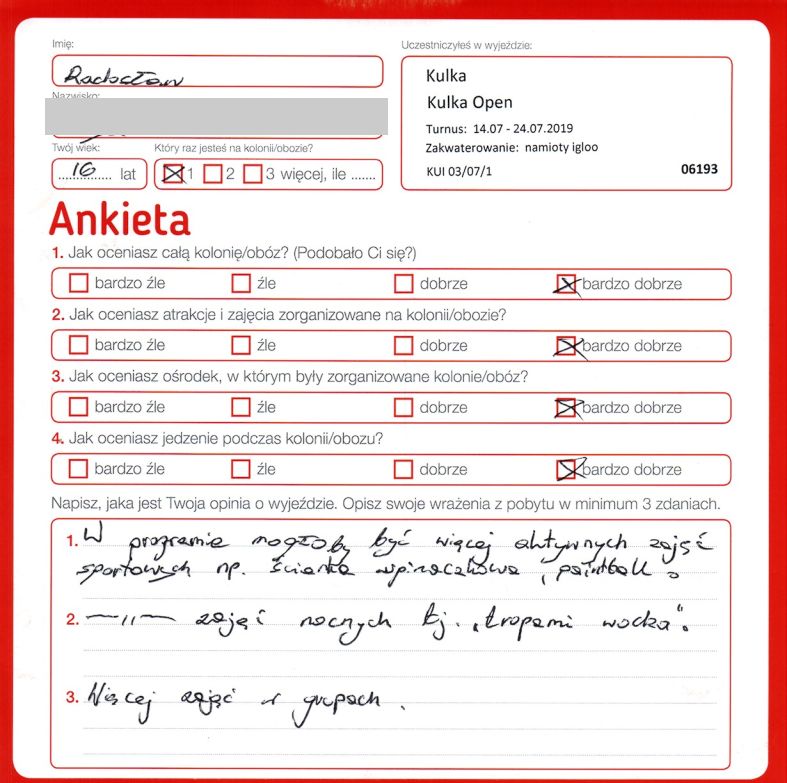 Imię:
Radosław
Nazwisko:
Twój wiek:
16 lat
Który raz jesteś na kolonii/obozie?
1 2 3 więcej, ile .......
Uczestniczyłeś w wyjeździe:
Kulka
Kulka Open
Turnus: 14.07 - 24.07.2019
Zakwaterowanie: namioty igloo
KUI 03/07/1 06193
Ankieta
1. Jak oceniasz całą kolonię/obóz? (Podobało Ci się?)
bardzo źle źle dobrze bardzo dobrze
2. Jak oceniasz atrakcje i zajęcia zorganizowane na kolonii/obozie?
bardzo źle źle dobrze bardzo dobrze
3. Jak oceniasz ośrodek, w którym były zorganizowane kolonie/obóz?
bardzo źle źle dobrze bardzo dobrze
4. Jak oceniasz jedzenie podczas kolonii/obozu?
bardzo źle źle dobrze bardzo dobrze
Napisz, jaka jest Twoja opinia o wyjeździe. Opisz swoje wrażenia z pobytu w minimum 3 zdaniach.
1. W programie mogłoby być więcej aktywnych zajęć
sportowych np. ścianka wspinaczkowa, paintball.
2. —〃— zajęć nocnych tj. „tropami wocka".
3. Więcej zajęć w grupach.